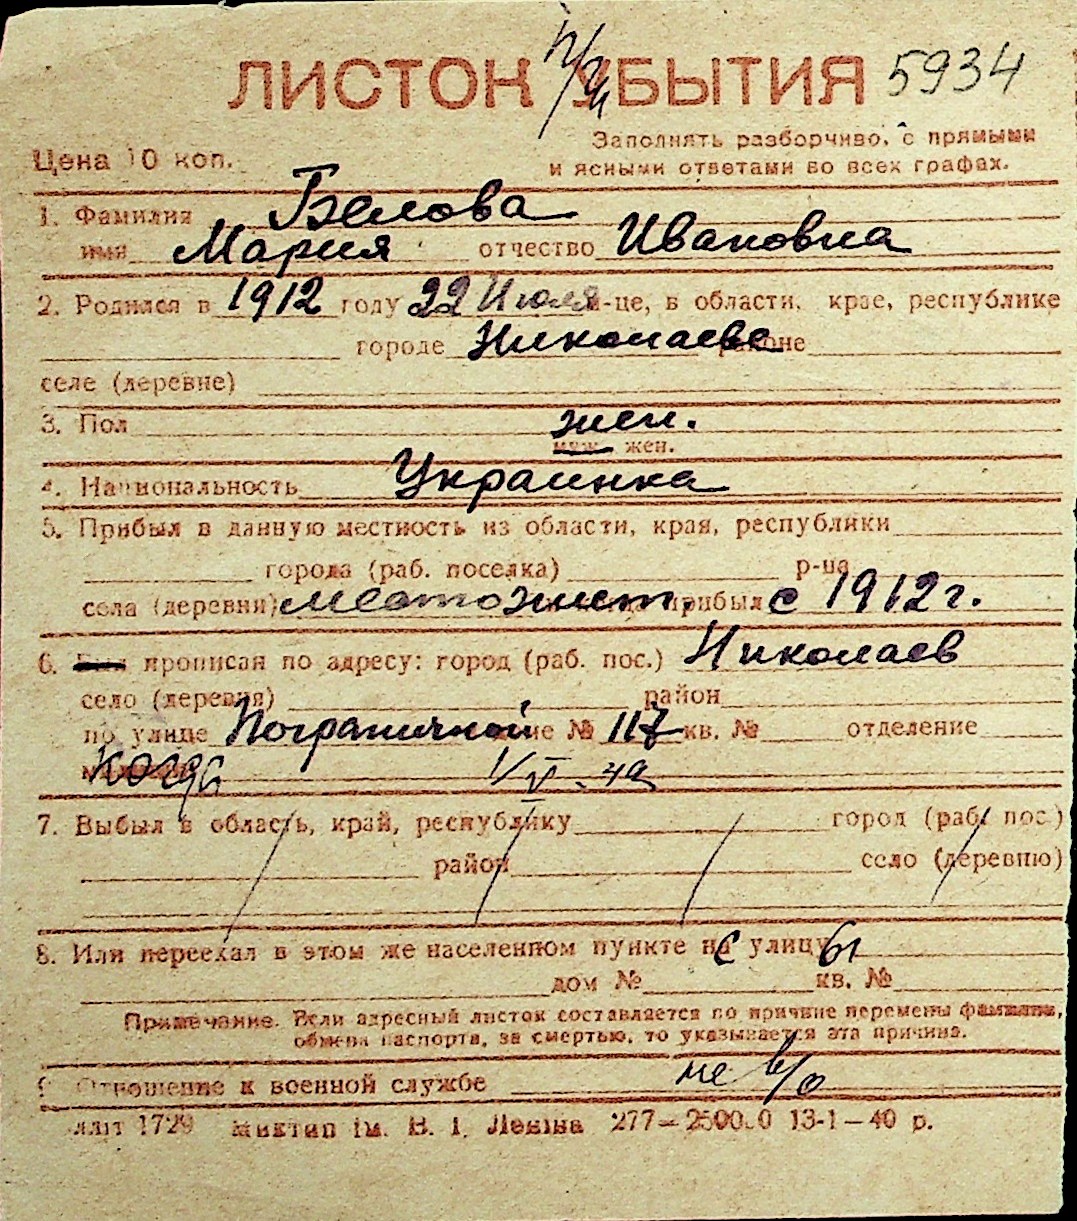 ЛИСТОК УБЫТИЯ 5934
Заполнять разборчиво, с прямыми
Цена 10 коп. и ясными ответами во всех графах.
1. Фамилия Белова
имя Мария отчество Ивановна
2. Родился в 1912 году 22 Июля м-це, в области, крае, республике
городе Николаеве районе
селе (деревне)
3. Пол жен.
муж. жен.
4. Национальность Украинка
5. Прибыл в данную местность из области, края, республики
города (раб. поселка) р-на
села (деревни) местожит. прибыл с 1912 г.
6. Был прописан по адресу: город (раб. пос.) Николаев
село (деревня) район
по улице Пограничной № 117 кв. № отделение
когда 1/V
7. Выбыл в область, край, республику город (раб. пос.)
район село (деревню)
8. Или переехал в этом же населенном пункте на улицу
дом № кв. №
Примечание. Если адресный листок составляется по причине перемены фамилии,
обмена паспорта, за смертью, то указывается эта причина.
9. Отношение к военной службе не в/о
літ 1729 ім. В. І. Леніна 277—25000 13-1—40 р.